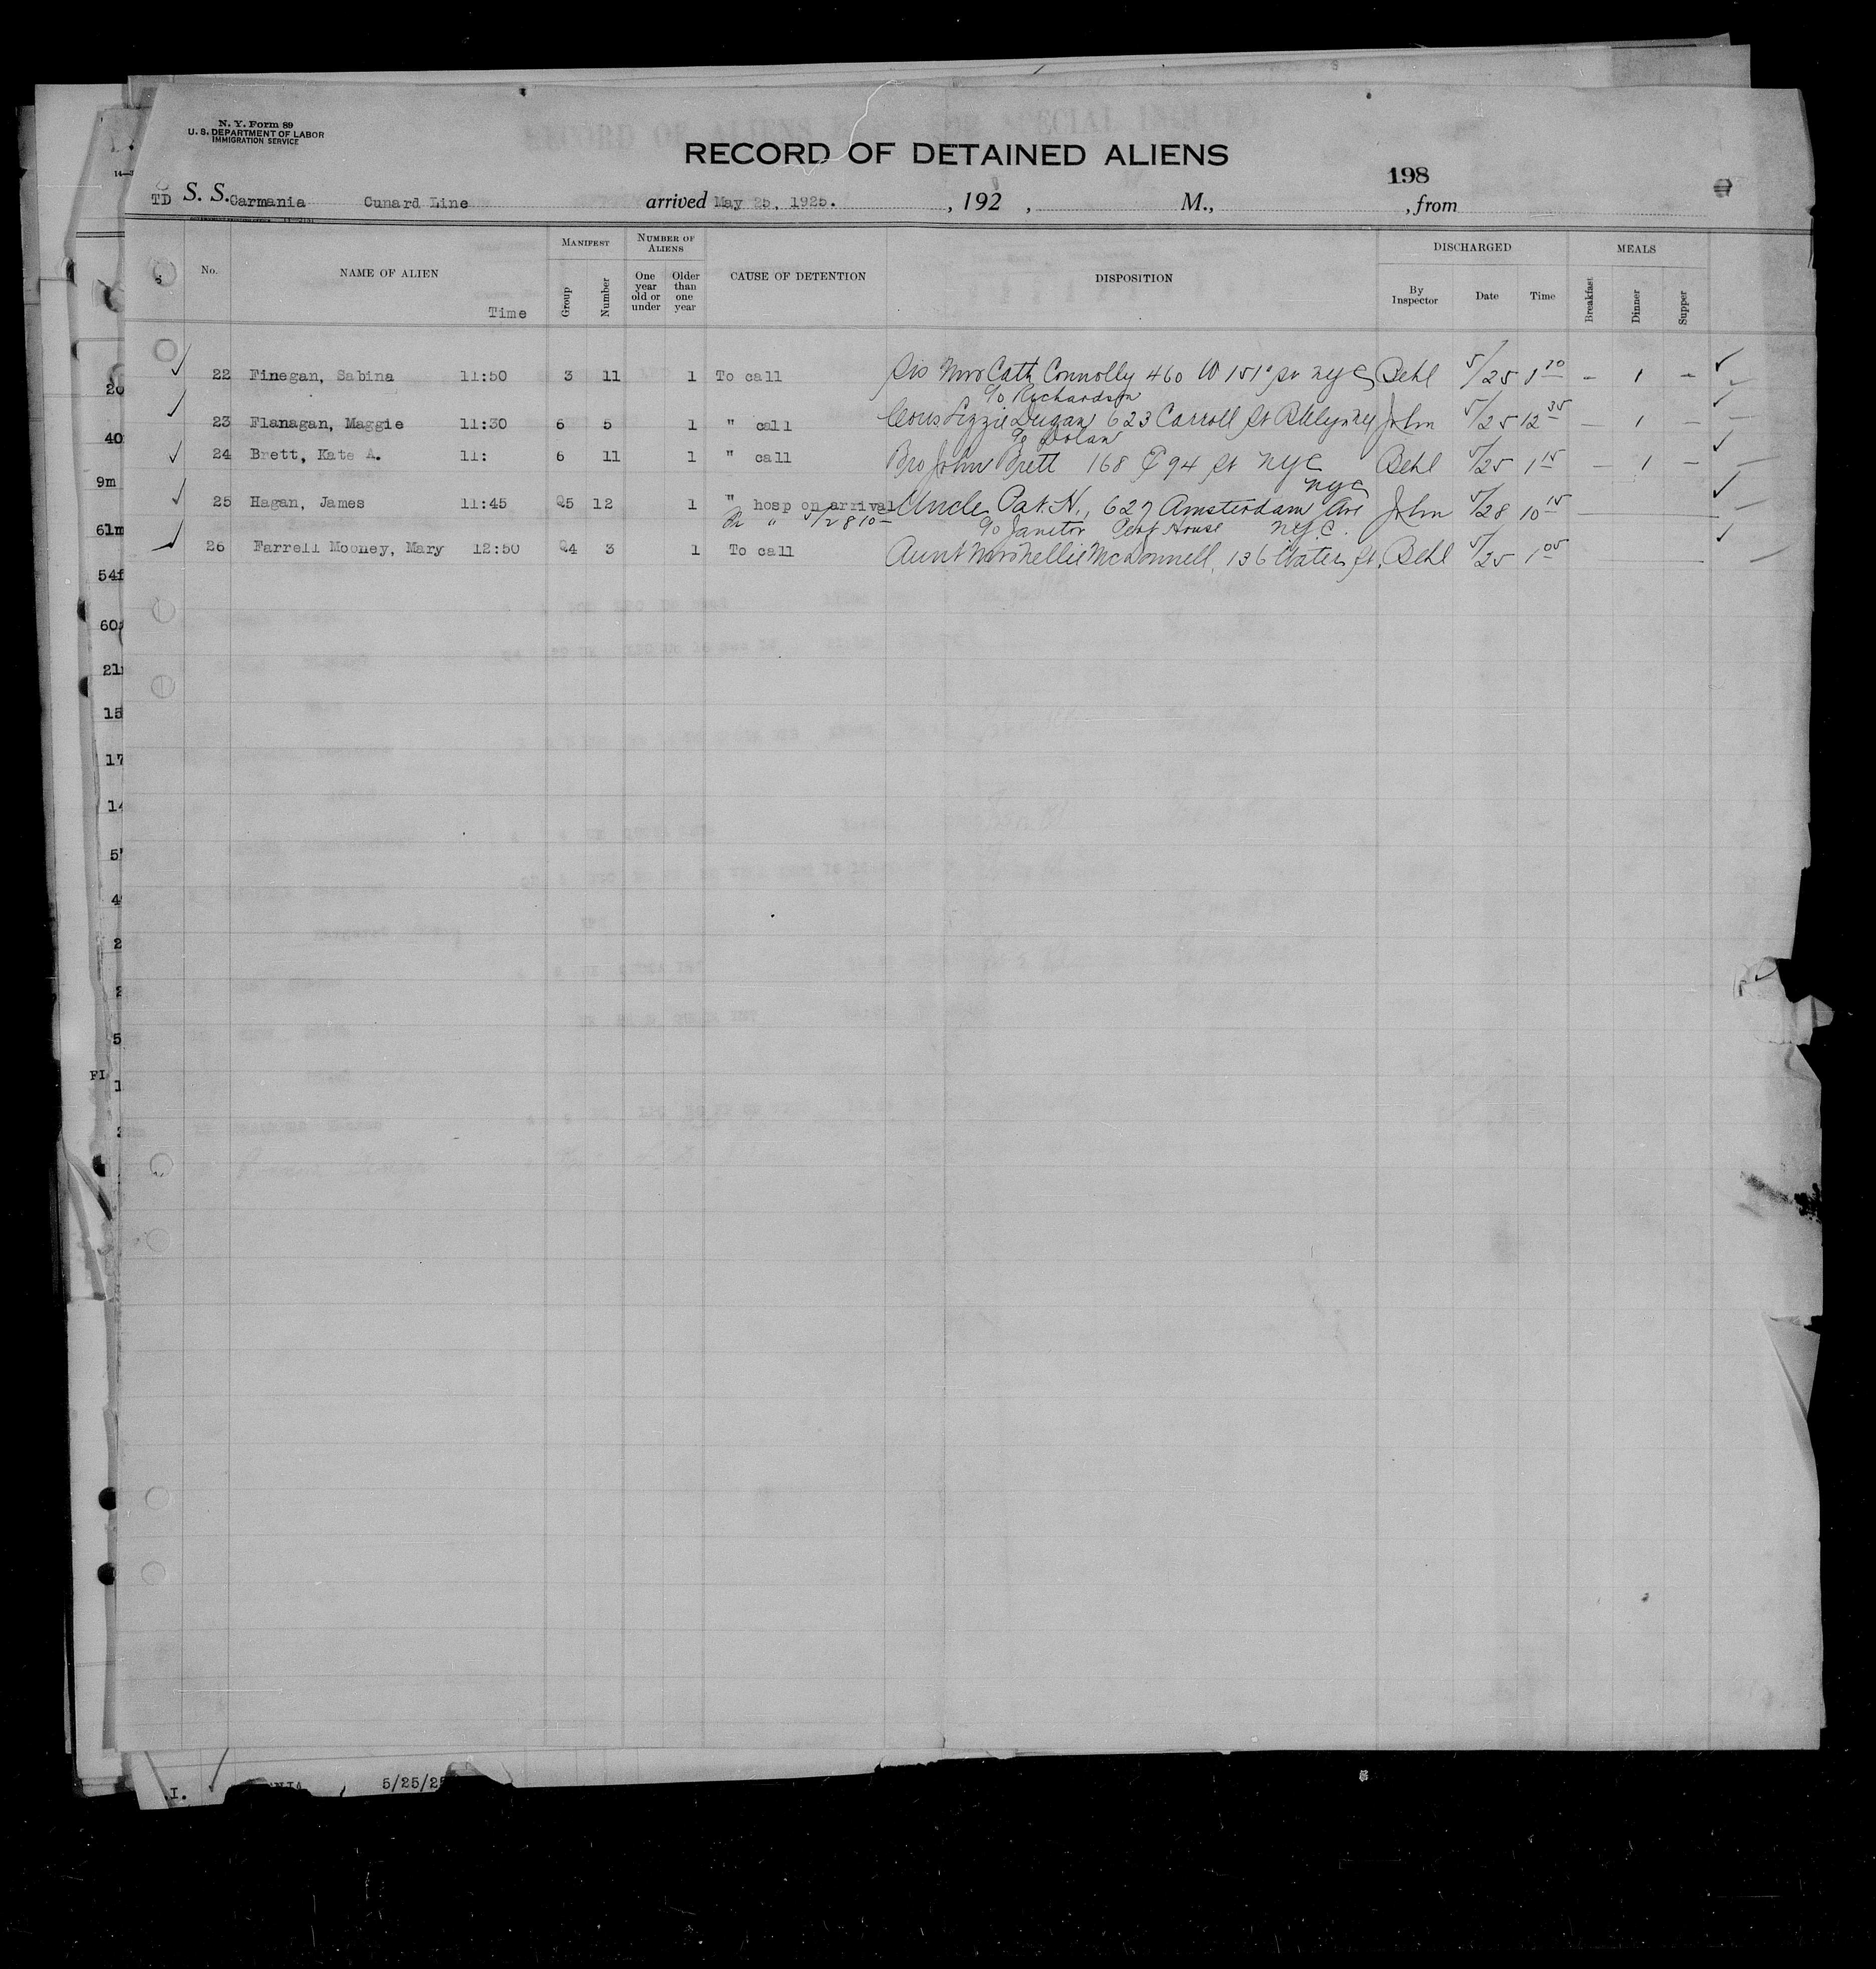 N. Y. Form 89
U. S. DEPARTMENT OF LABOR
IMMIGRATION SERVICE
RECORD OF DETAINED ALIENS
198
TD S. S. Carmania Cunard Line arrived May 25, 1925. , 192 , M., , from
MANIFEST NUMBER OF ALIENS DISCHARGED MEALS
No. NAME OF ALIEN Time Group Number One year old or under Older than one year CAUSE OF DETENTION DISPOSITION By Inspector Date Time Breakfast Dinner Supper
22 Finegan, Sabina 11:50 3 11 1 To call Sis Mrs Cath Connolly 460 W 151 st NYC Behl 5/25 - 1 -
c/o Richardson
23 Flanagan, Maggie 11:30 6 5 1 " call Cous Lizzie Dugan 623 Carroll St Bklyn NY John 5/25 12 35 — 1 —
c/o Dolan
24 Brett, Kate A. 11: 6 11 1 " call Bro John Brett 168 E 94 St NYC Behl 5/25 1 15 — 1 —
NYC
25 Hagan, James 11:45 Q5 12 1 " hosp on arrival Uncle Pat H., 627 Amsterdam Ave John 5/28 10 15
" 5/28 10 c/o Janitor House N.Y.C.
26 Farrell Mooney, Mary 12:50 Q4 3 1 To call Aunt Mrs Nellie McDonnell, 136 Water St. Behl 5/25 1 05
20
40
9m
61m
54f
60
21
15
17
14
5
4
2
2
5
FI
1
.I. NIA 5/25/25